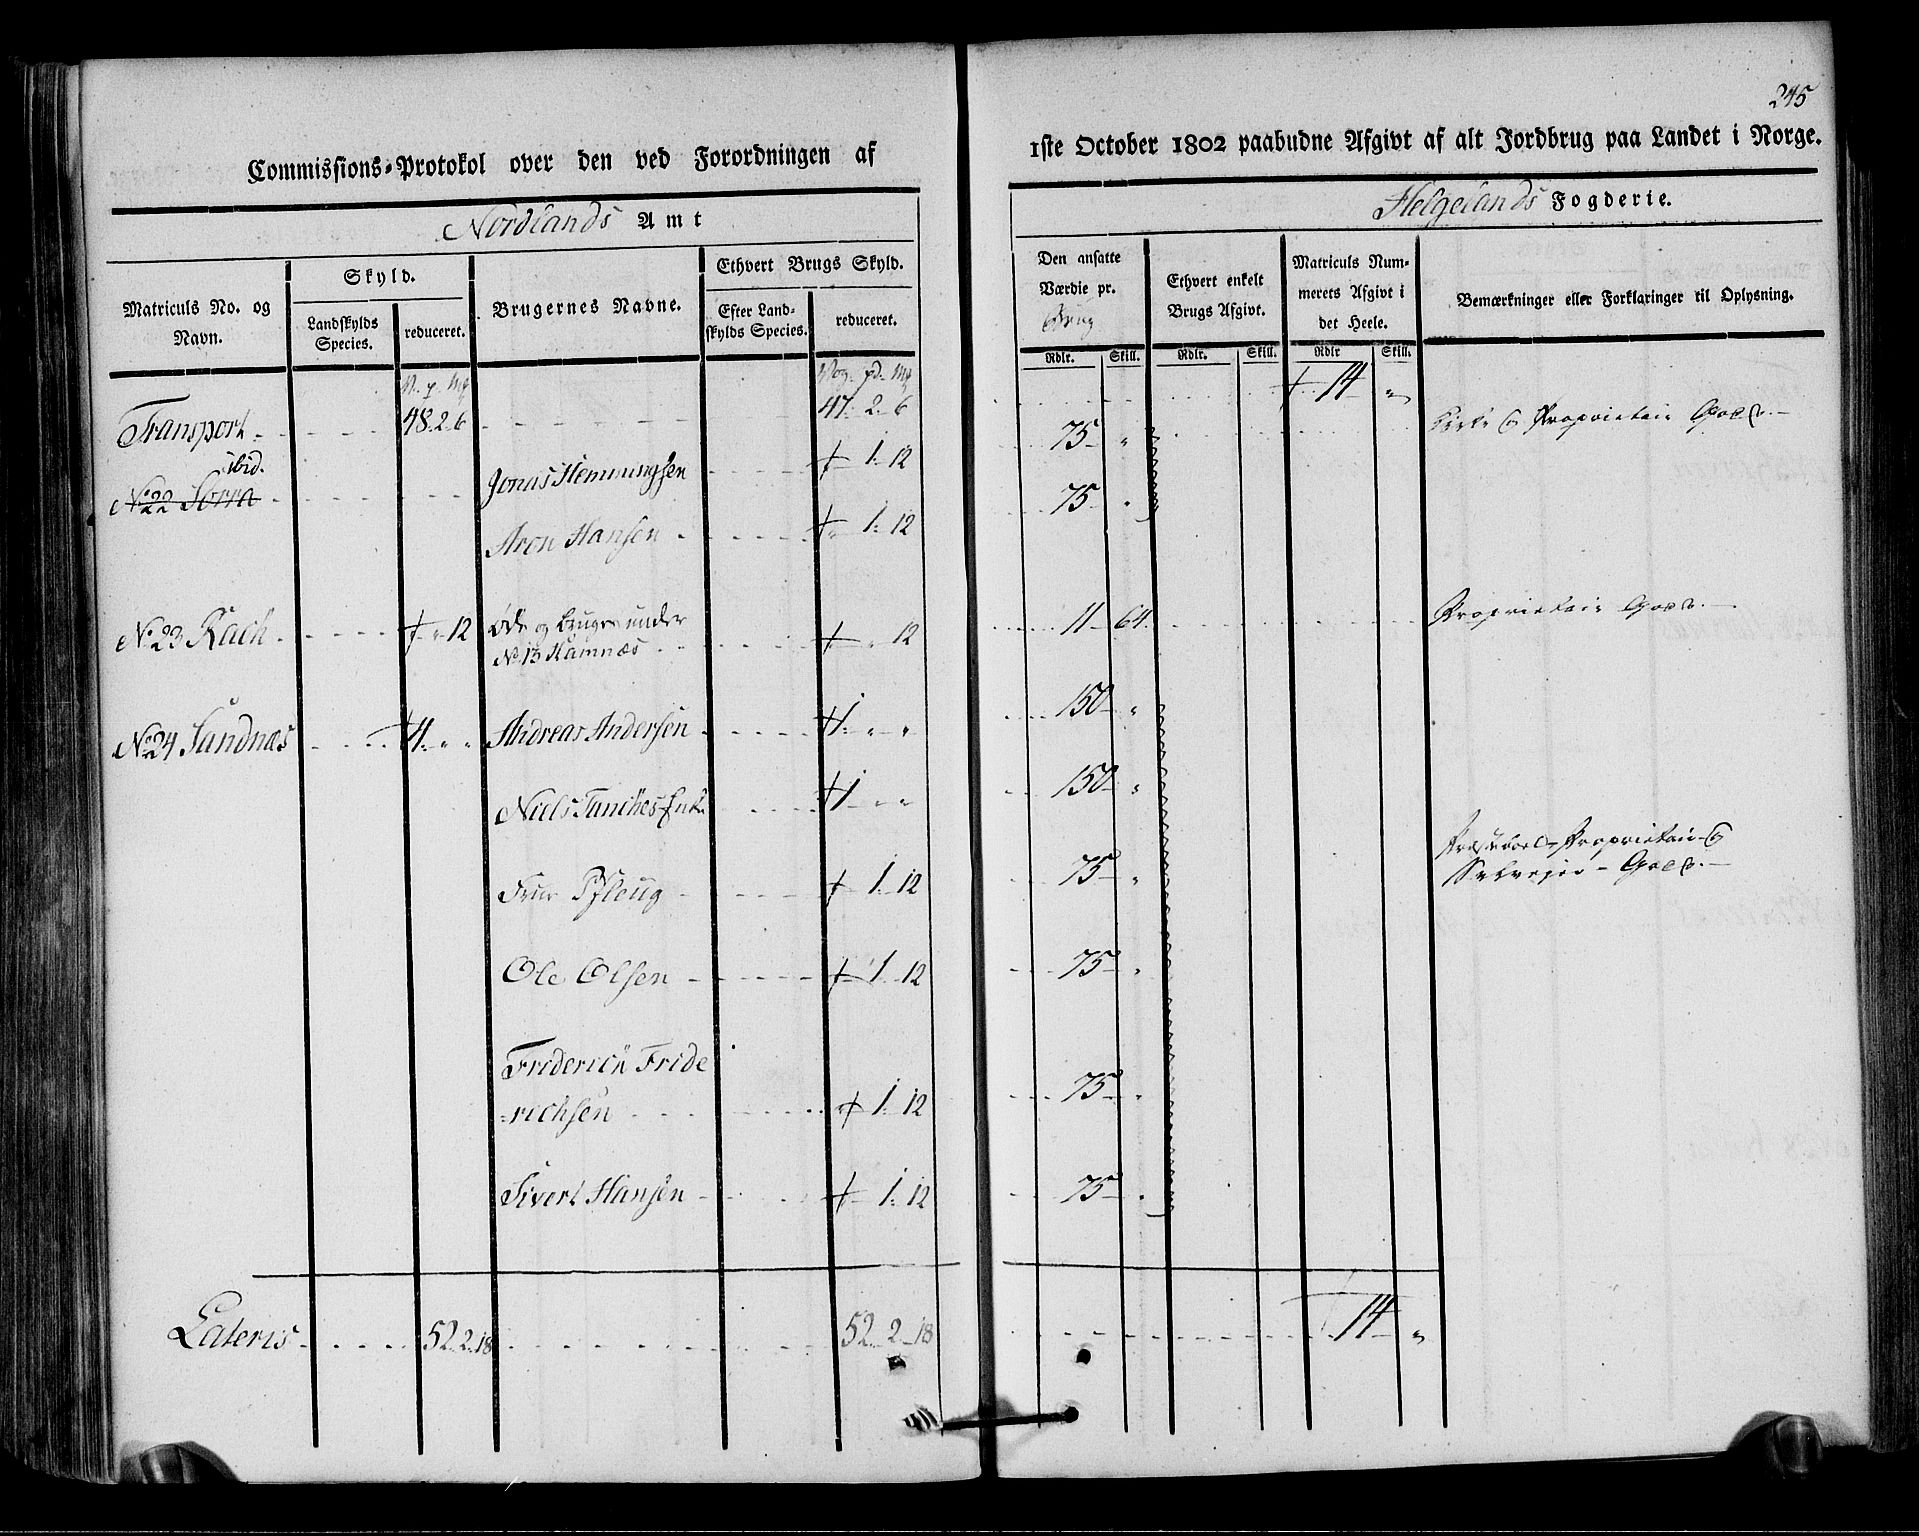 245
Commissions-Protokol over den ved Forordningen af
1ste October 1802 paabudne Afgivt af alt Jordbrug paa Landet i Norge.
Nordlands Amt
Helgelands Fogderie.
Matriculs No. og Navn.
Skyld.
Landskylds Species.
reduceret.
Brugernes Navne.
Ethvert Brugs Skyld.
Efter Landskylds Species.
reduceret.
Den ansatte Værdie pr. Brug
Rdlr. Skill.
Ethvert enkelt Brugs Afgivt.
Rdlr. Skill.
Matriculs Nummerets Afgivt i det Heele.
Rdlr Skill.
Bemærkninger eller Forklaringer til Oplysning.
V. p. Mk
Vog. pd. Mk
Transport 48. 2. 6 47. 2. 6 14 "
ibid.
No 22 Sørra
Jonas Hemmingsen 1. 12 75 "
Kirke & Proprietair Gods.
Aron Hansen 1. 12 75 "
No 23 Rach " 12 Øde og bruges under
No. 13 Hamnæs " 12 11 64
Proprietair Gods.
No 24 Sandnæs 4. " " Andreas Andersen 1. " " 150 "
Niels Enke 1 " " 150 "
Proprietair &
Selvejer Gods.
Frue Pfleug 1. 12 75 "
Ole Olsen 1. 12 75 "
Friderich Fride
richsen 1. 12 75 "
Sivert Hansen 1. 12 75 "
Lateris 52. 2. 18 52. 2. 18 14 "